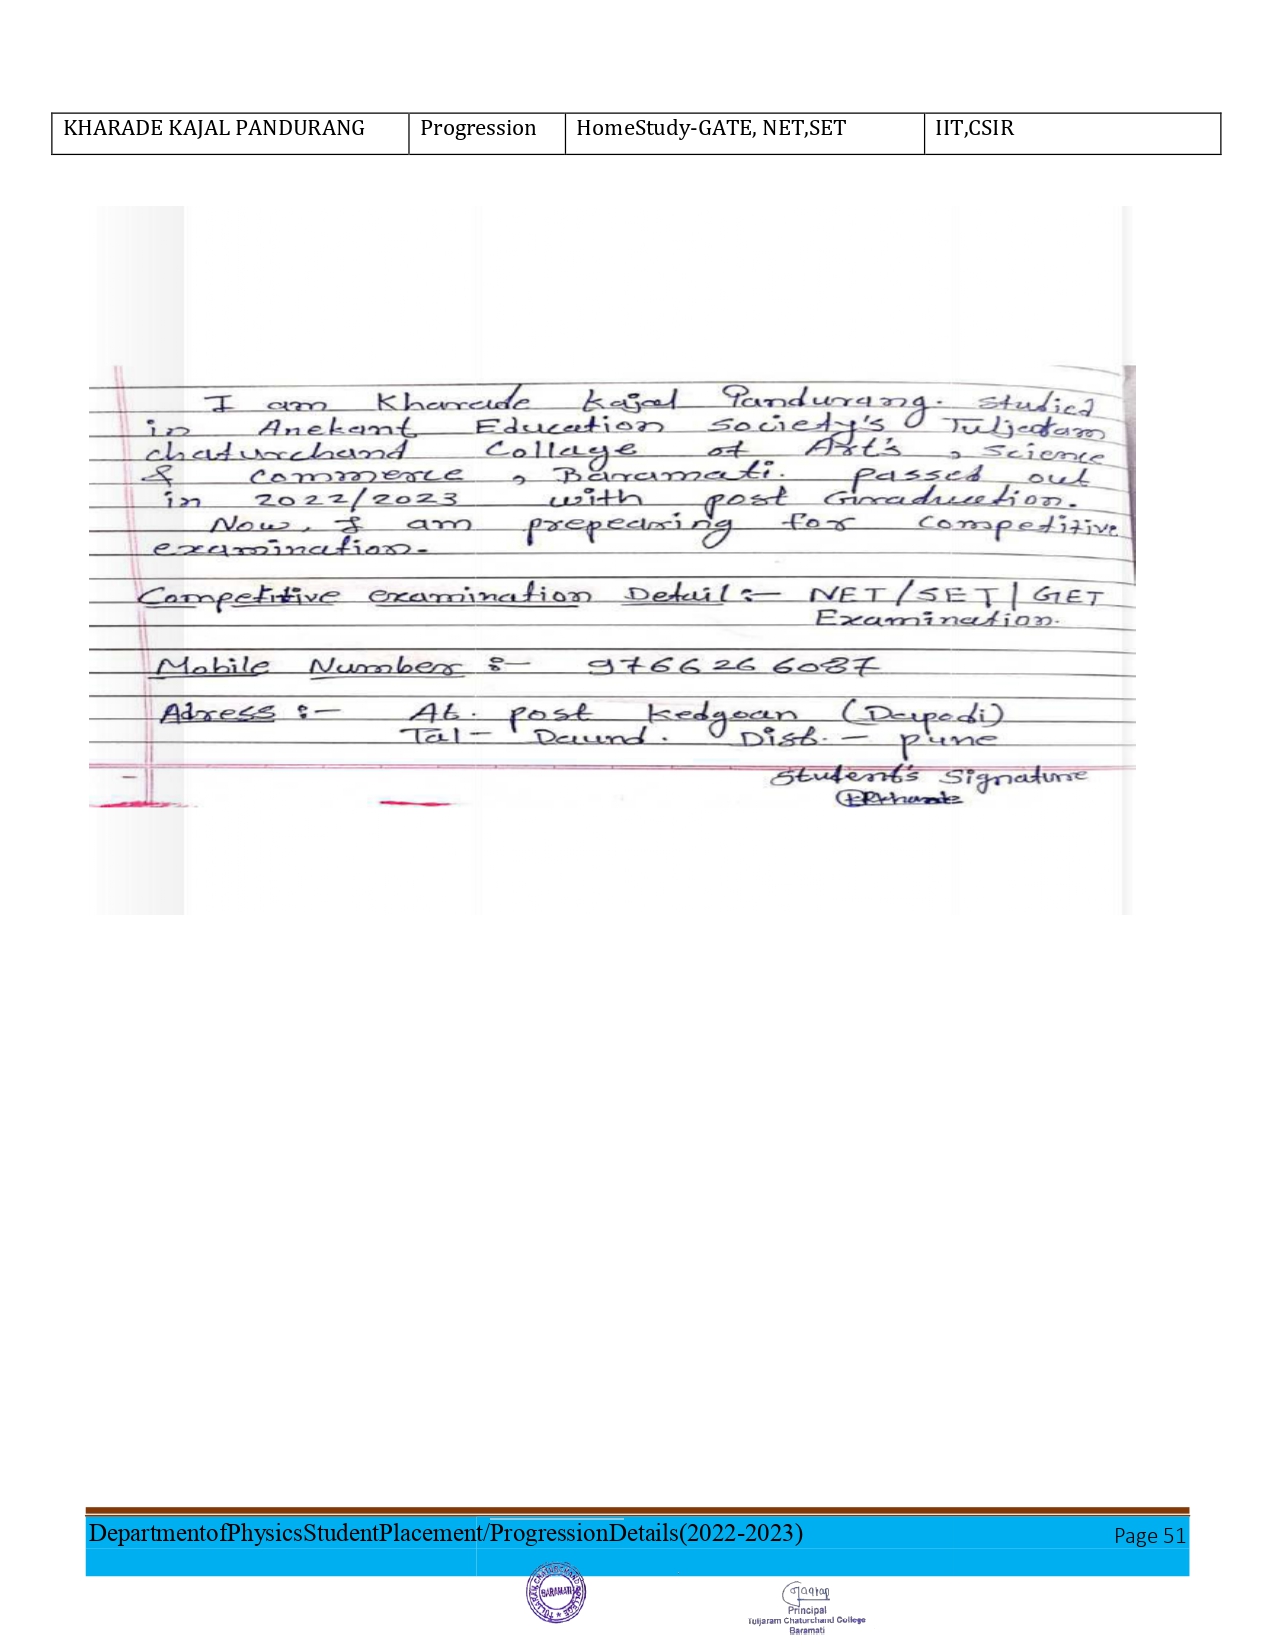 KHARADE KAJAL PANDURANG Progression HomeStudy-GATE, NET,SET IIT,CSIR
I am Kharade Kajal Pandurang. studied
in Anekant Education Society's Tuljaram
chaturchand Collage of Art's, Science
& Commerce, Baramati. Passed out
in 2022/2023 with post Graduation.
Now, I am prepearing for Competitive
examination.
Competitive examination Detail :- NET/SET/GET
Examination.
Mobile Number :- 9766266087
Adress :- At. post Kedgoan (Dapodi)
Tal- Daund. Dist. - pune
Student's Signature
DepartmentofPhysicsStudentPlacement/ProgressionDetails(2022-2023) Page 51
BARAMATI
Principal
Tuljaram Chaturchand College
Baramati